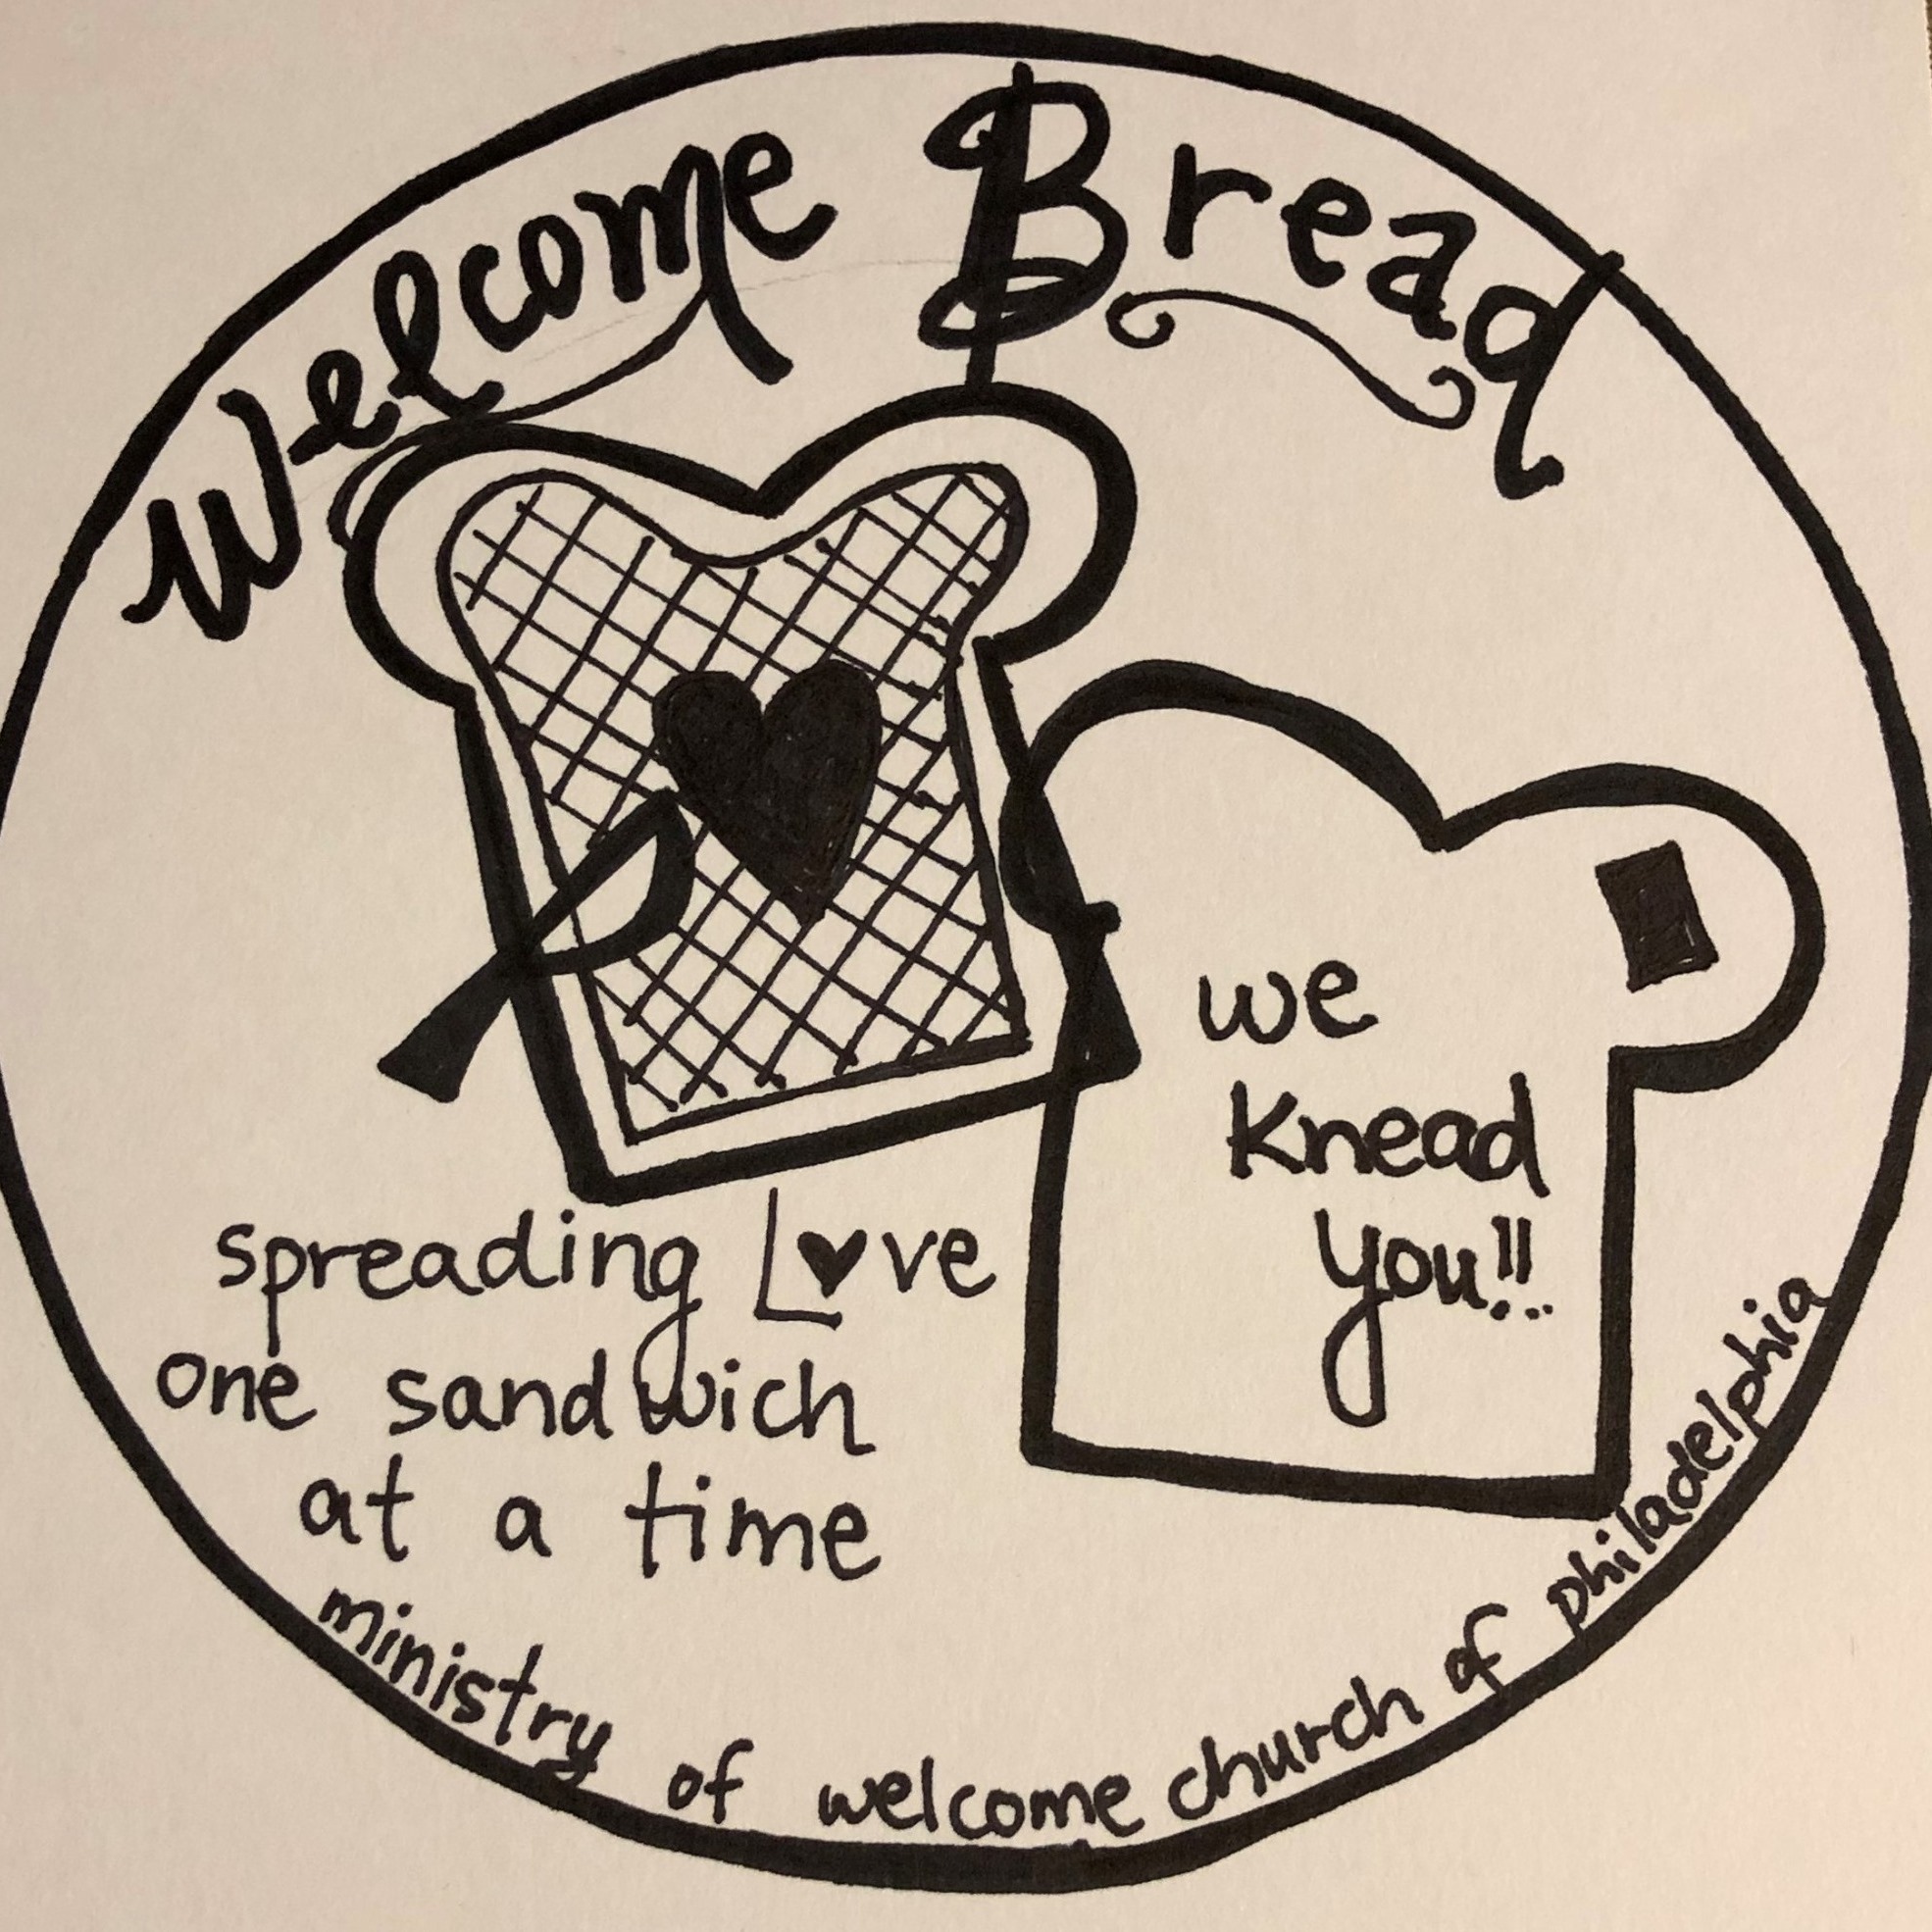 Welcome Bread
we
Knead
you!!
spreading L♥ve
one sandwich
at a time
ministry of welcome church of philadelphia